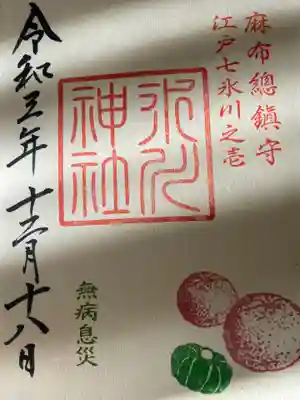 麻布總鎮守
江戸七氷川之壱
氷川
神社
無病息災
令和三年十二月十八日